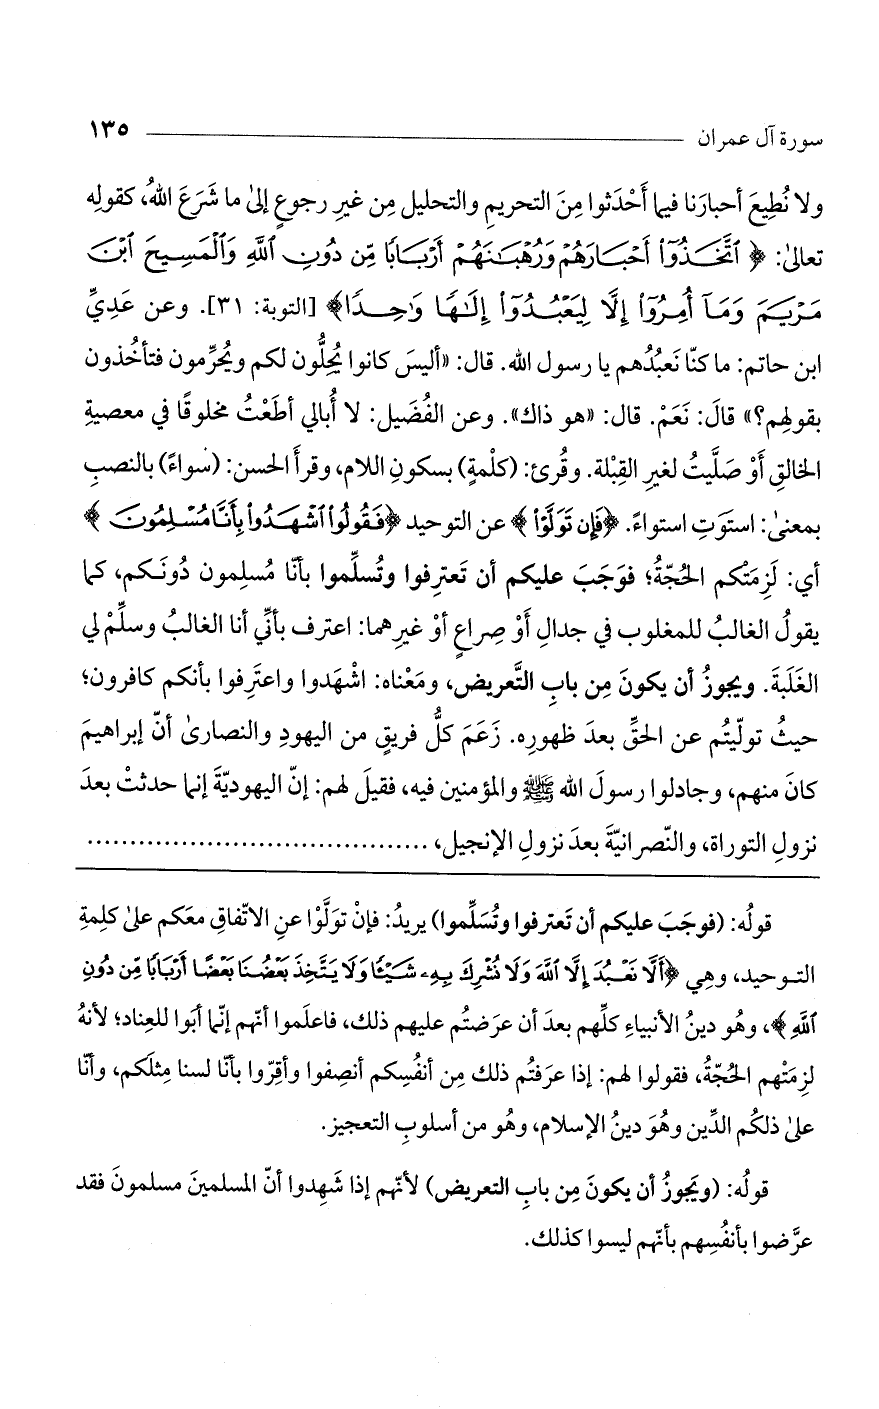 سورة آل عمران ١٣٥
ولا نُطِيعَ أحبارَنا فيما أَحْدَثوا مِنَ التحريمِ والتحليل مِن غيرِ رجوعٍ إلىٰ ما شَرَعَ اللهُ، كقولِه
تعالىٰ: ﴿ ٱتَّخَذُوٓاْ أَحْبَارَهُمْ وَرُهْبَـٰنَهُمْ أَرْبَابًا مِّن دُونِ ٱللَّهِ وَٱلْمَسِيحَ ٱبْنَ
مَرْيَمَ وَمَآ أُمِرُوٓاْ إِلَّا لِيَعْبُدُوٓاْ إِلَـٰهًا وَٰحِدًا﴾ [التوبة: ٣١]. وعن عَدِيِّ
ابن حاتم: ما كنّا نَعبُدُهم يا رسول الله. قال: «أليسَ كانوا يُحِلُّون لكم ويُحرِّمون فتأخُذون
بقولِهم؟» قالَ: نَعَمْ. قال: «هو ذاك». وعن الفُضَيل: لا أُبالي أطَعْتُ مخلوقًا في معصيةِ
الخالقِ أَوْ صَلَّيتُ لغيرِ القِبْلة. وقُرئ: (كلْمةٍ) بسكونِ اللام، وقرأَ الحسن: (سواءً) بالنصبِ
بمعنىٰ: استوَتِ استواءً. ﴿فَإِن تَوَلَّوْاْ﴾ عن التوحيد ﴿فَقُولُواْ ٱشْهَدُواْ بِأَنَّا مُسْلِمُونَ ﴾
أي: لَزِمَتْكم الحُجّةُ؛ فوَجَبَ عليكم أن تَعترِفوا وتُسلِّموا بأنّا مُسلِمون دُونَكم، كما
يقولُ الغالبُ للمغلوب في جدالٍ أَوْ صِراعٍ أوْ غيرِهما: اعترف بأنّي أنا الغالبُ وسلِّمْ لي
الغَلَبَةَ. ويجوزُ أن يكونَ مِن بابِ التَّعريض، ومَعْناه: اشْهَدوا واعتَرِفوا بأنكم كافرون؛
حيثُ تولّيتُم عن الحقِّ بعدَ ظهورِه. زَعَمَ كلُّ فريقٍ من اليهودِ والنصارىٰ أنّ إبراهيمَ
كانَ منهم، وجادلوا رسولَ الله ﷺ والمؤمنين فيه، فقيلَ لهم: إنّ اليهوديّةَ إنما حدثتْ بعدَ
نزولِ التوراة، والنّصرانيّةَ بعدَ نزولِ الإنجيل، ........................................
قولُه: (فوجَبَ عليكم أن تَعترفوا وتُسَلِّموا) يريدُ: فإنْ تَولَّوْا عنِ الاتّفاقِ معَكم علىٰ كلِمةِ
التوحيد، وهِي ﴿أَلَّا نَعْبُدَ إِلَّا ٱللَّهَ وَلَا نُشْرِكَ بِهِۦ شَيْـًٔا وَلَا يَتَّخِذَ بَعْضُنَا بَعْضًا أَرْبَابًا مِّن دُونِ
ٱللَّهِ ﴾، وهُو دينُ الأنبياءِ كلِّهم بعدَ أن عرَضتُم عليهم ذلك، فاعلَموا أنّهم إنّما أبَوا للعِناد؛ لأنهُ
لزِمَتْهم الحُجّةُ، فقولوا لهم: إذا عرَفتُم ذلك مِن أنفُسِكم أنصِفوا وأقِرّوا بأنّا لسنا مِثلَكم، وأنّا
علىٰ ذلكُم الدِّين وهُوَ دينُ الإسلام، وهُو من أسلوبِ التعجيز.
قولُه: (ويَجوزُ أن يكونَ مِن بابِ التعريض) لأنّهم إذا شَهِدوا أنّ المسلمينَ مسلمونَ فقد
عرَّضوا بأنفُسِهم بأنّهم ليسوا كذلك.